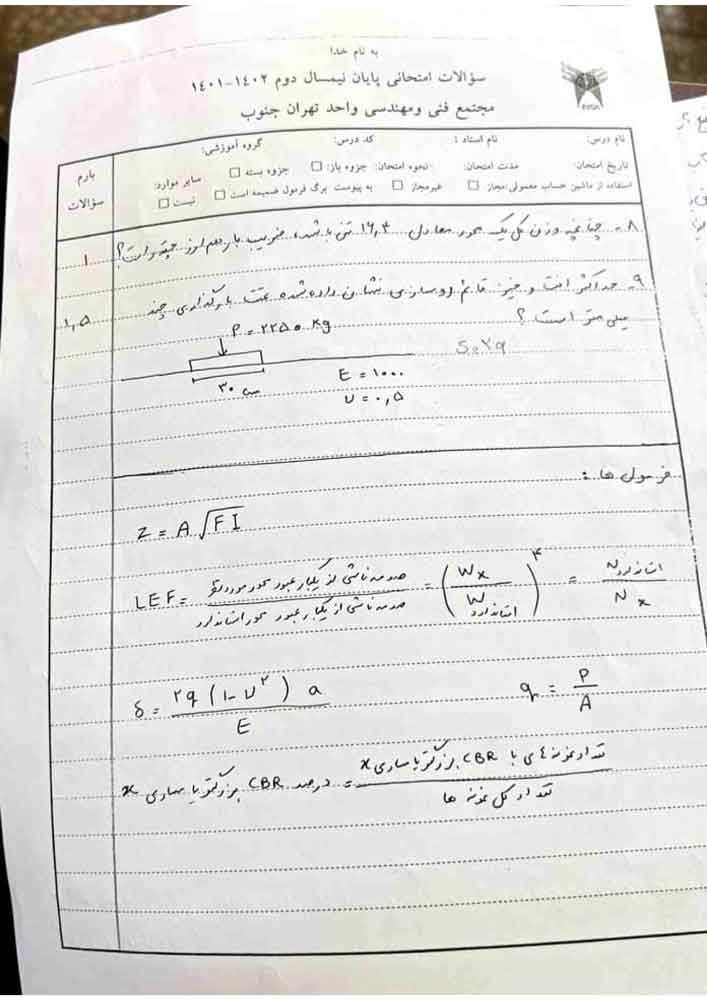 به نام خدا
سؤالات امتحانی پایان نیمسال دوم ۱۴۰۲-۱۴۰۱
مجتمع فنی ومهندسی واحد تهران جنوب
نام درس: نام استاد : کد درس: گروه آموزشی:
تاریخ امتحان: مدت امتحان: نحوه امتحان: جزوه باز: □ جزوه بسته □ سایر موارد:
استفاده از ماشین حساب معمولی:مجاز □ غیرمجاز □ به پیوست برگ فرمول ضمیمه است □ نیست □
بارم سؤالات
۸- چنانچه وزن کل یک محور معادل ۱۶,۴ تن باشد، ضریب بار هم ارز چقدر است؟ ۱
۹- حداکثر افت و خیز قائم روسازی نشان داده شده تحت بارگذاری چند ۱,۵
میلی متر است ؟
P = ۲۲۵۰ kg
۳۰ cm
E = ۱۰۰۰
υ = ۰,۵
فرمول ها :
Z = A √FI
LEF = صدمه ناشی از یکبار عبور محور مورد نظر / صدمه ناشی از یکبار عبور محور استاندارد = (Wx / W استاندارد)^۴ = N استاندارد / Nx
δ = ۲q (۱-υ^۲) a / E
q = P / A
درصد CBR بزرگتر یا مساوی x = تعداد نمونه های با CBR بزرگتر یا مساوی x / تعداد کل نمونه ها